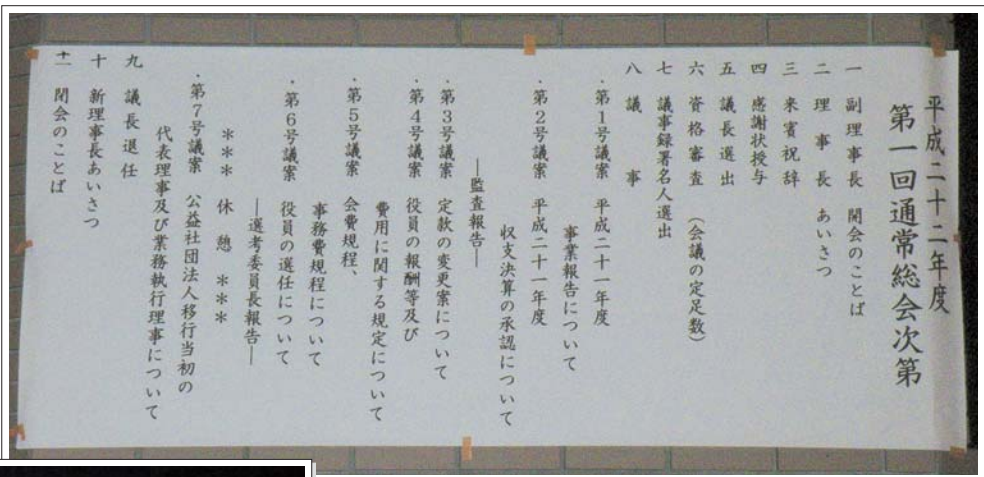 平成二十二年度
第一回通常総会次第
一 副理事長 開会のことば
二 理事長 あいさつ
三 来賓祝辞
四 感謝状授与
五 議長選出
六 資格審査 (会議の定足数)
七 議事録署名人選出
八 議事
・第1号議案 平成二十一年度
事業報告について
・第2号議案 平成二十一年度
収支決算の承認について
―監査報告―
・第3号議案 定款の変更案について
・第4号議案 役員の報酬等及び
費用に関する規定について
・第5号議案 会費規程、
事務費規程について
・第6号議案 役員の選任について
―選考委員長報告―
*** 休憩 ***
・第7号議案 公益社団法人移行当初の
代表理事及び業務執行理事について
九 議長退任
十 新理事長あいさつ
十一 閉会のことば